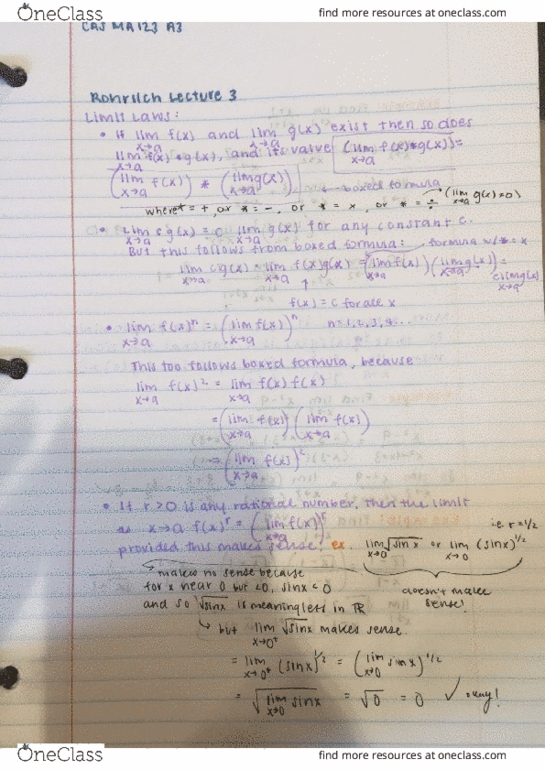 OneClass
find more resources at oneclass.com
CAS MA 123 A3
Rohrlich Lecture 3
Limit Laws:
• If lim x→a f(x) and lim x→a g(x) exist then so does
lim x→a f(x) * g(x), and its value (lim x→a f(x) * g(x)) =
(lim x→a f(x)) * (lim x→a g(x)) boxed formula
where * = +, or * = -, or * = x, or * = ÷ (lim x→a g(x) ≠ 0)
• lim x→a cg(x) = c lim x→a g(x) for any constant c.
But this follows from boxed formula: formula w/ * = x
lim x→a cg(x) = lim x→a f(x)g(x) = (lim x→a f(x)) (lim x→a g(x)) =
c lim x→a g(x)
↑
f(x) = c for all x
• lim x→a f(x)ⁿ = (lim x→a f(x))ⁿ n=1,2,3,4...
This too follows boxed formula, because
lim x→a f(x)² = lim x→a f(x) f(x)
= (lim x→a f(x)) (lim x→a f(x))
= (lim x→a f(x))²
• If r>0 is any rational number, then the limit
as x→a f(x)ʳ = (lim x→a f(x))ʳ i.e. r=1/2
provided this makes sense! ex. lim x→0 √sinx or lim x→0 (sinx)^1/2
makes no sense because
for x near 0 but <0, sinx<0
doesn't make sense!
and so √sinx is meaningless in ℝ
↳ but lim x→0⁺ √sinx makes sense.
= lim x→0⁺ (sinx)^1/2 = (lim x→0 sinx)^1/2
= √lim x→0 sinx = √0 = 0 ✓ okay!
OneClass
find more resources at oneclass.com